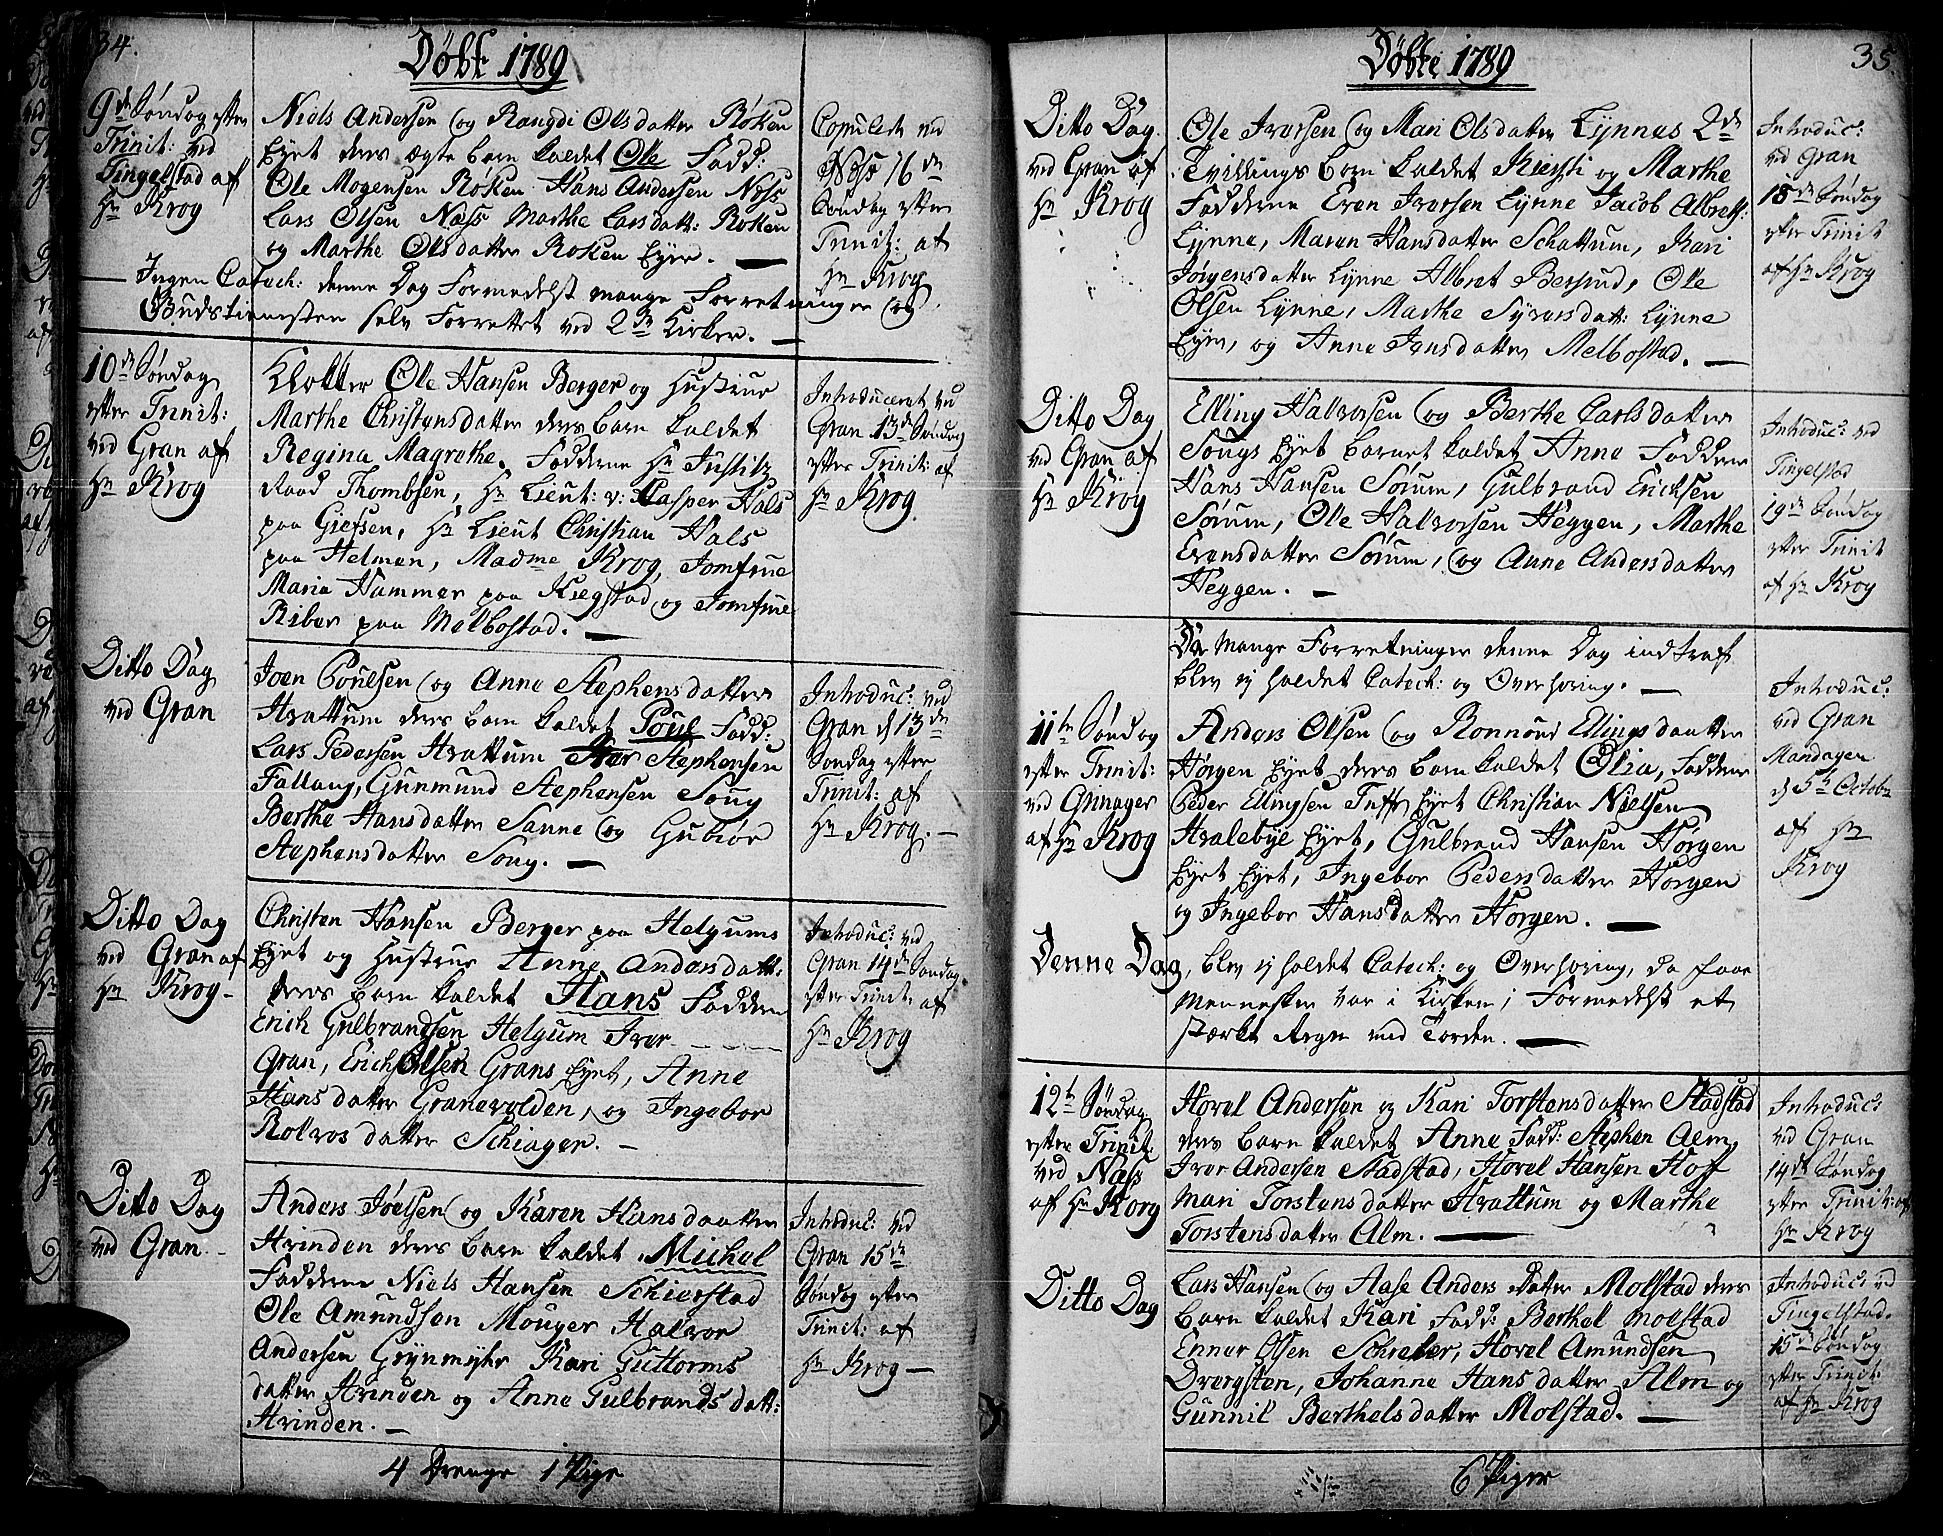 34.
Döbt 1789
9de Søndag efter
Trinit: ved
Tingelstad af
Hr Krog
Niels Andersen og Rangdi Olsdatter Røken
Eyet deres ægte barn kaldet Ole Fadd:
Ole Mogensen Røken Hans Andersen Næss
Lars Olsen Næss Marthe Larsdatt: Røken
og Marthe Olsdatter Røken Eyer.
Copulede ved
Næss 16de
Søndag efter
Trinit: af
Hr Krog
Ingen Catech: denne Dag Formedelst mange Forretninger og
Gudstienesten selv Forrettet ved 2de Kirker.
10de Søndag
efter Trinit:
ved Gran af
Hr Krog
Klokker Ole Hansen Berger og Hustrue
Marthe Christensdatter deres barn kaldet
Regina Magrethe. Fadderne Hr Justitz
Raad Thombsen, Hr Lieut: v: Casper Hals
paa Giefsen, Hr Lieut Christian Hals
paa Helmen, Madme Krog, Jomfrue
Maria Hammer paa Kiegstad og Jomfrue
Riber paa Melbostad.
Introduceret ved
Gran 13de Søndag
efter Trinit: af
Hr Krog
Ditto Dag
ved Gran
Joen Poulsen og Anne Stephensdatter
Hvattum deres barn kaldet Poul Fadd:
Lars Pedersen Hvattum Iver Stephensen
Fallang, Gunmund Stephensen Soug
Berthe Hansdatter Sanne og Gubiør
Stephensdatter Soug.
Introduc: ved
Gran d 13de
Søndag efter
Trinit: af
Hr Krog.
Ditto Dag
ved Gran af
Hr Krog
Christen Hansen Berger paa Helgums
Eyet og Hustrue Anne Andersdatt:
deres barn kaldet Hans Faddere
Erich Gulbrandsen Helgum Iver
Gran, Erich Olsen Grans Eyet, Anne
Hansdatter Granevolden, og Ingebor
Rolvosdatter Schiager.
Introduc: ved
Gran 14de Søndag
efter Trinit: af
Hr Krog
Ditto Dag
ved Gran
Anders Joelsen og Karen Hansdaatter
Hvinden deres barn kaldet Michel
Fadderne Niels Hansen Schierstad
Ole Amundsen Mouger Halvor
Andersen Grynmyhr Kari Guttorms
datter Hvinden og Anne Gulbrandsdatt:
Hvinden.
Introduc: ved
Gran 15de
Søndag efter
Trinit: af
Hr Krog
4 Drenge 1 Pige
Döbte 1789
35.
Ditto Dag
ved Gran af
Hr Krog
Ole Iversen og Mari Olsdatter Lynnes 2de
Tvillings børn kaldet Kiersti og Marthe
Fadderne Even Iversen Lynne Jacob Albretss:
Lynne, Maren Hansdatter Schattum, Kari
Jørgensdatter Lynne Albret Bersund, Ole
Olsen Lynne, Marthe Syversdatt: Lynne
Eyer, og Anne Jensdatter Melbostad.
Introduc:
ved Gran
18de Søndag
efter Trinit
af Hr Krog
Ditto Dag
ved Gran af
Hr Krog
Elling Halvorsen og Berthe Carlsdatter
Sougs Eyet barnet kaldet Anne Faddere
Hans Hansen Sørum, Gulbrand Ericksen
Sørum, Ole Halvorsen Heggen, Marthe
Evensdatter Sørum, og Anne Andersdatter
Heggen.
Introduc: ved
Tingelstad
19de Søndag
efter Trinit
af Hr Krog
Da mange Forretninger denne Dag indtraff
blev ej holdet Catech: og Overhøring.
11te Søndag
efter Trinit:
ved Grinager
af Hr Krog
Anders Olsen og Ronnoud Ellingsdaatter
Horgen Eyet deres barn kaldet Olia, Fadderne
Peder Ellingsen Tuff Eyet Christian Nielsen
Hvalebye Eyet, Gulbrand Hansen Horgen
Eyet Eyet, Ingebor Pedersdatter Horgen
og Ingebor Hansdatter Horgen.
Introduc:
ved Gran
Mandagen
d 5te Octobr
af Hr
Krog
Denne Dag, blev ej holdet Catech: og Overhøring, da faae
Mennesker var i Kirken, Formedelst et
stærkt Regn med Torden.
12te Søndag
efter Trinit:
ved Næss
af Hr Korg
Hovel Andersen og Kari Torstensdatter Stadstad
deres barn kaldet Anne Fadd: Stephen Alm
Iver Andersen Stadstad, Hovel Hansen Hoff
Mari Torstensdatter Hvattum og Marthe
Torstensdatter Alm.
Introduc:
ved Gran
14de Søndag
efter Trinit: af
Hr Krog
Ditto Dag
Lars Hansen og Aase Anders Datter Molstad deres
barn kaldet Kari Fadd: Berthel Molstad
Enner Olsen Schreber, Hovel Amundsen
Dvergsten, Johanne Hansdatter Alm og
Gunnil Berthelsdatter Molstad.
Introduc: ved
Tingelstad.
15de Søndag
efter Trinit:
af Hr Krog
6 Piger